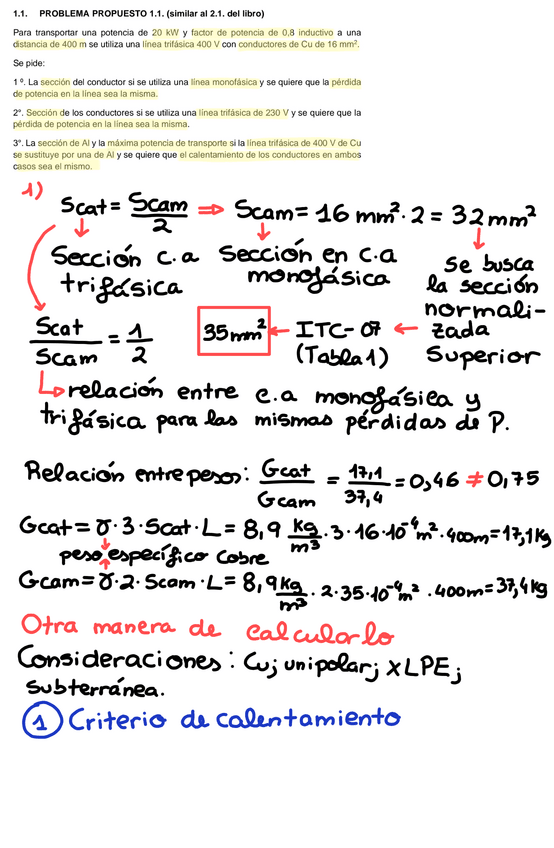 1.1. PROBLEMA PROPUESTO 1.1. (similar al 2.1. del libro)
Para transportar una potencia de 20 kW y factor de potencia de 0,8 inductivo a una
distancia de 400 m se utiliza una línea trifásica 400 V con conductores de Cu de 16 mm².
Se pide:
1 º. La sección del conductor si se utiliza una línea monofásica y se quiere que la pérdida
de potencia en la línea sea la misma.
2°. Sección de los conductores si se utiliza una línea trifásica de 230 V y se quiere que la
pérdida de potencia en la línea sea la misma.
3°. La sección de Al y la máxima potencia de transporte si la línea trifásica de 400 V de Cu
se sustituye por una de Al y se quiere que el calentamiento de los conductores en ambos
casos sea el mismo.
1)
Scat = Scam/2 ⇒ Scam = 16 mm² · 2 = 32 mm²
Sección c.a trifásica
Sección en c.a monofásica
Se busca la sección normalizada Superior
Scat/Scam = 1/2
35 mm² ← ITC-07 (Tabla 1) ←
↳ relación entre c.a monofásica y
trifásica para las mismas pérdidas de P.
Relación entre pesos: Gcat/Gcam = 17,1/37,4 = 0,46 ≠ 0,75
Gcat = γ · 3 · Scat · L = 8,9 kg/m³ · 3 · 16 · 10⁻⁴ m² · 400m = 17,1 Kg
peso específico cobre
Gcam = γ · 2 · Scam · L = 8,9 kg/m³ · 2 · 35 · 10⁻⁴ m² · 400m = 37,4 kg
Otra manera de calcularlo
Consideraciones: Cu; unipolar; XLPE;
Subterránea.
1 Criterio de calentamiento